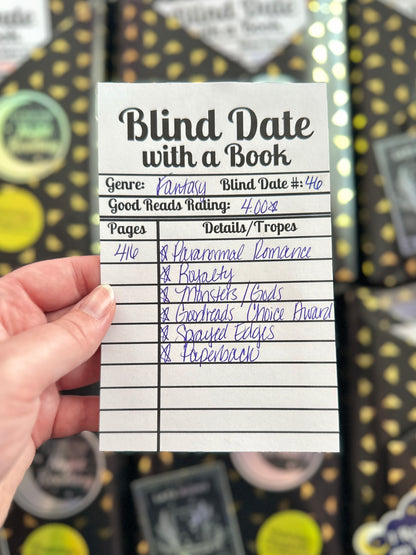 Blind Date
with a Book
Genre: Fantasy Blind Date #: 46
Good Reads Rating: 4.00☆
Pages Details/Tropes
416 ☆ Paranormal Romance
☆ Royalty
☆ Monsters/Gods
☆ Goodreads Choice Award
☆ Sprayed Edges
☆ Paperback